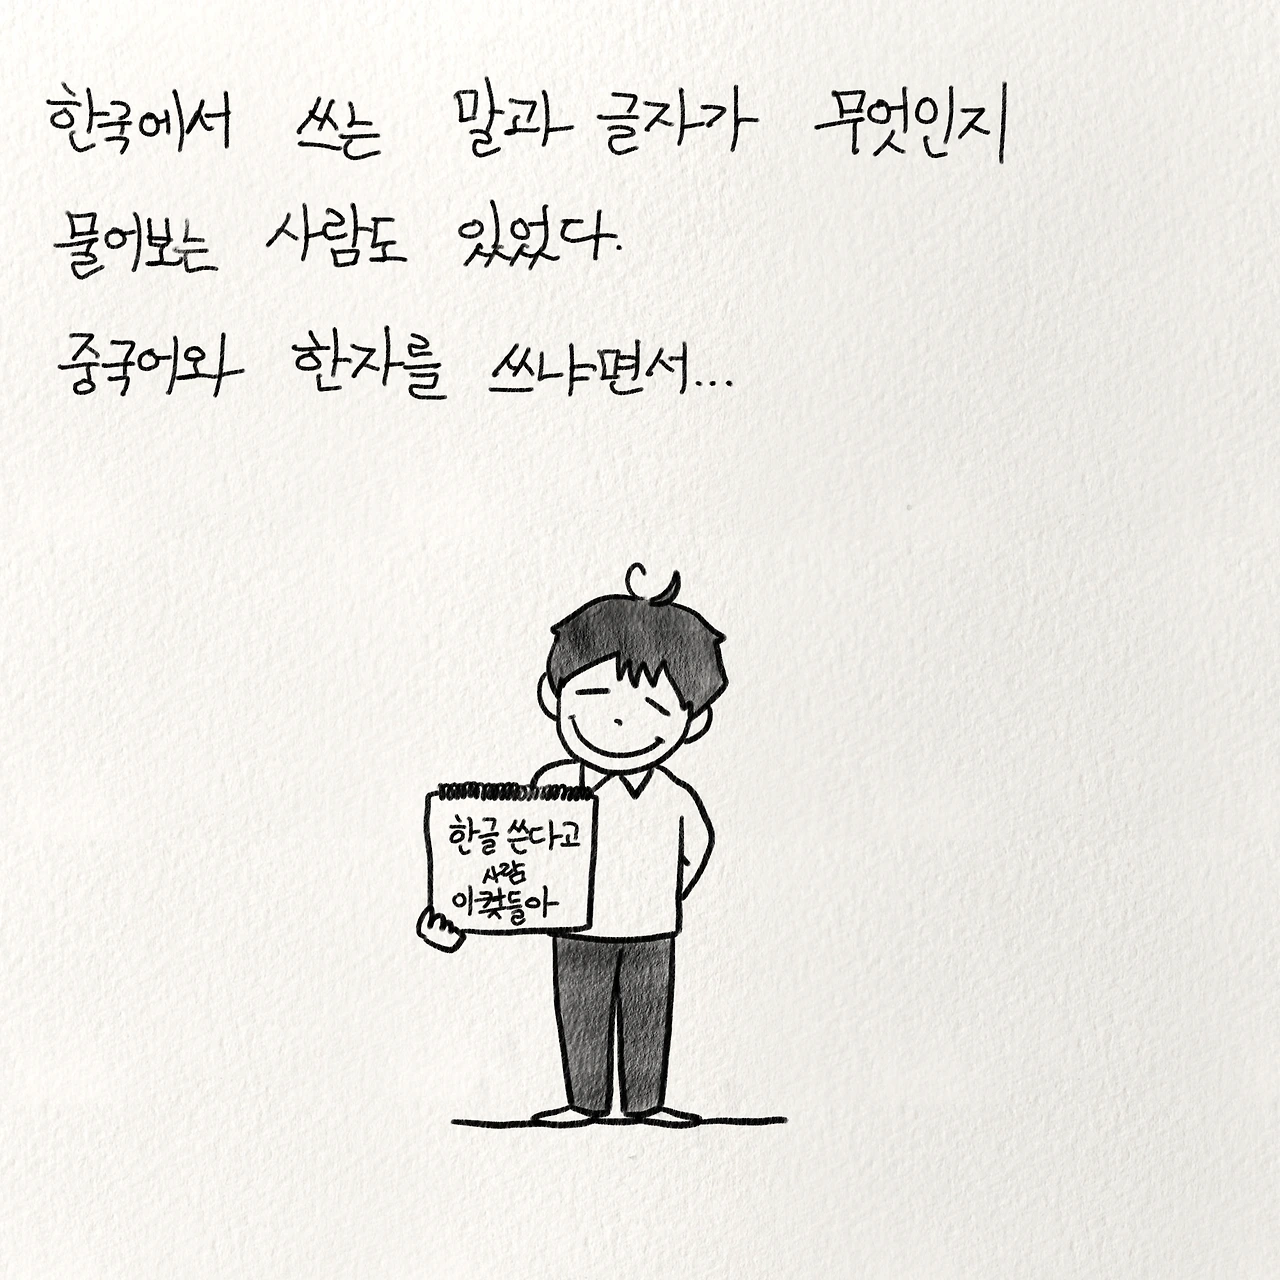 한국에서 쓰는 말과 글자가 무엇인지
물어보는 사람도 있었다.
중국어와 한자를 쓰냐면서...
한글 쓴다고
사람
이 들아